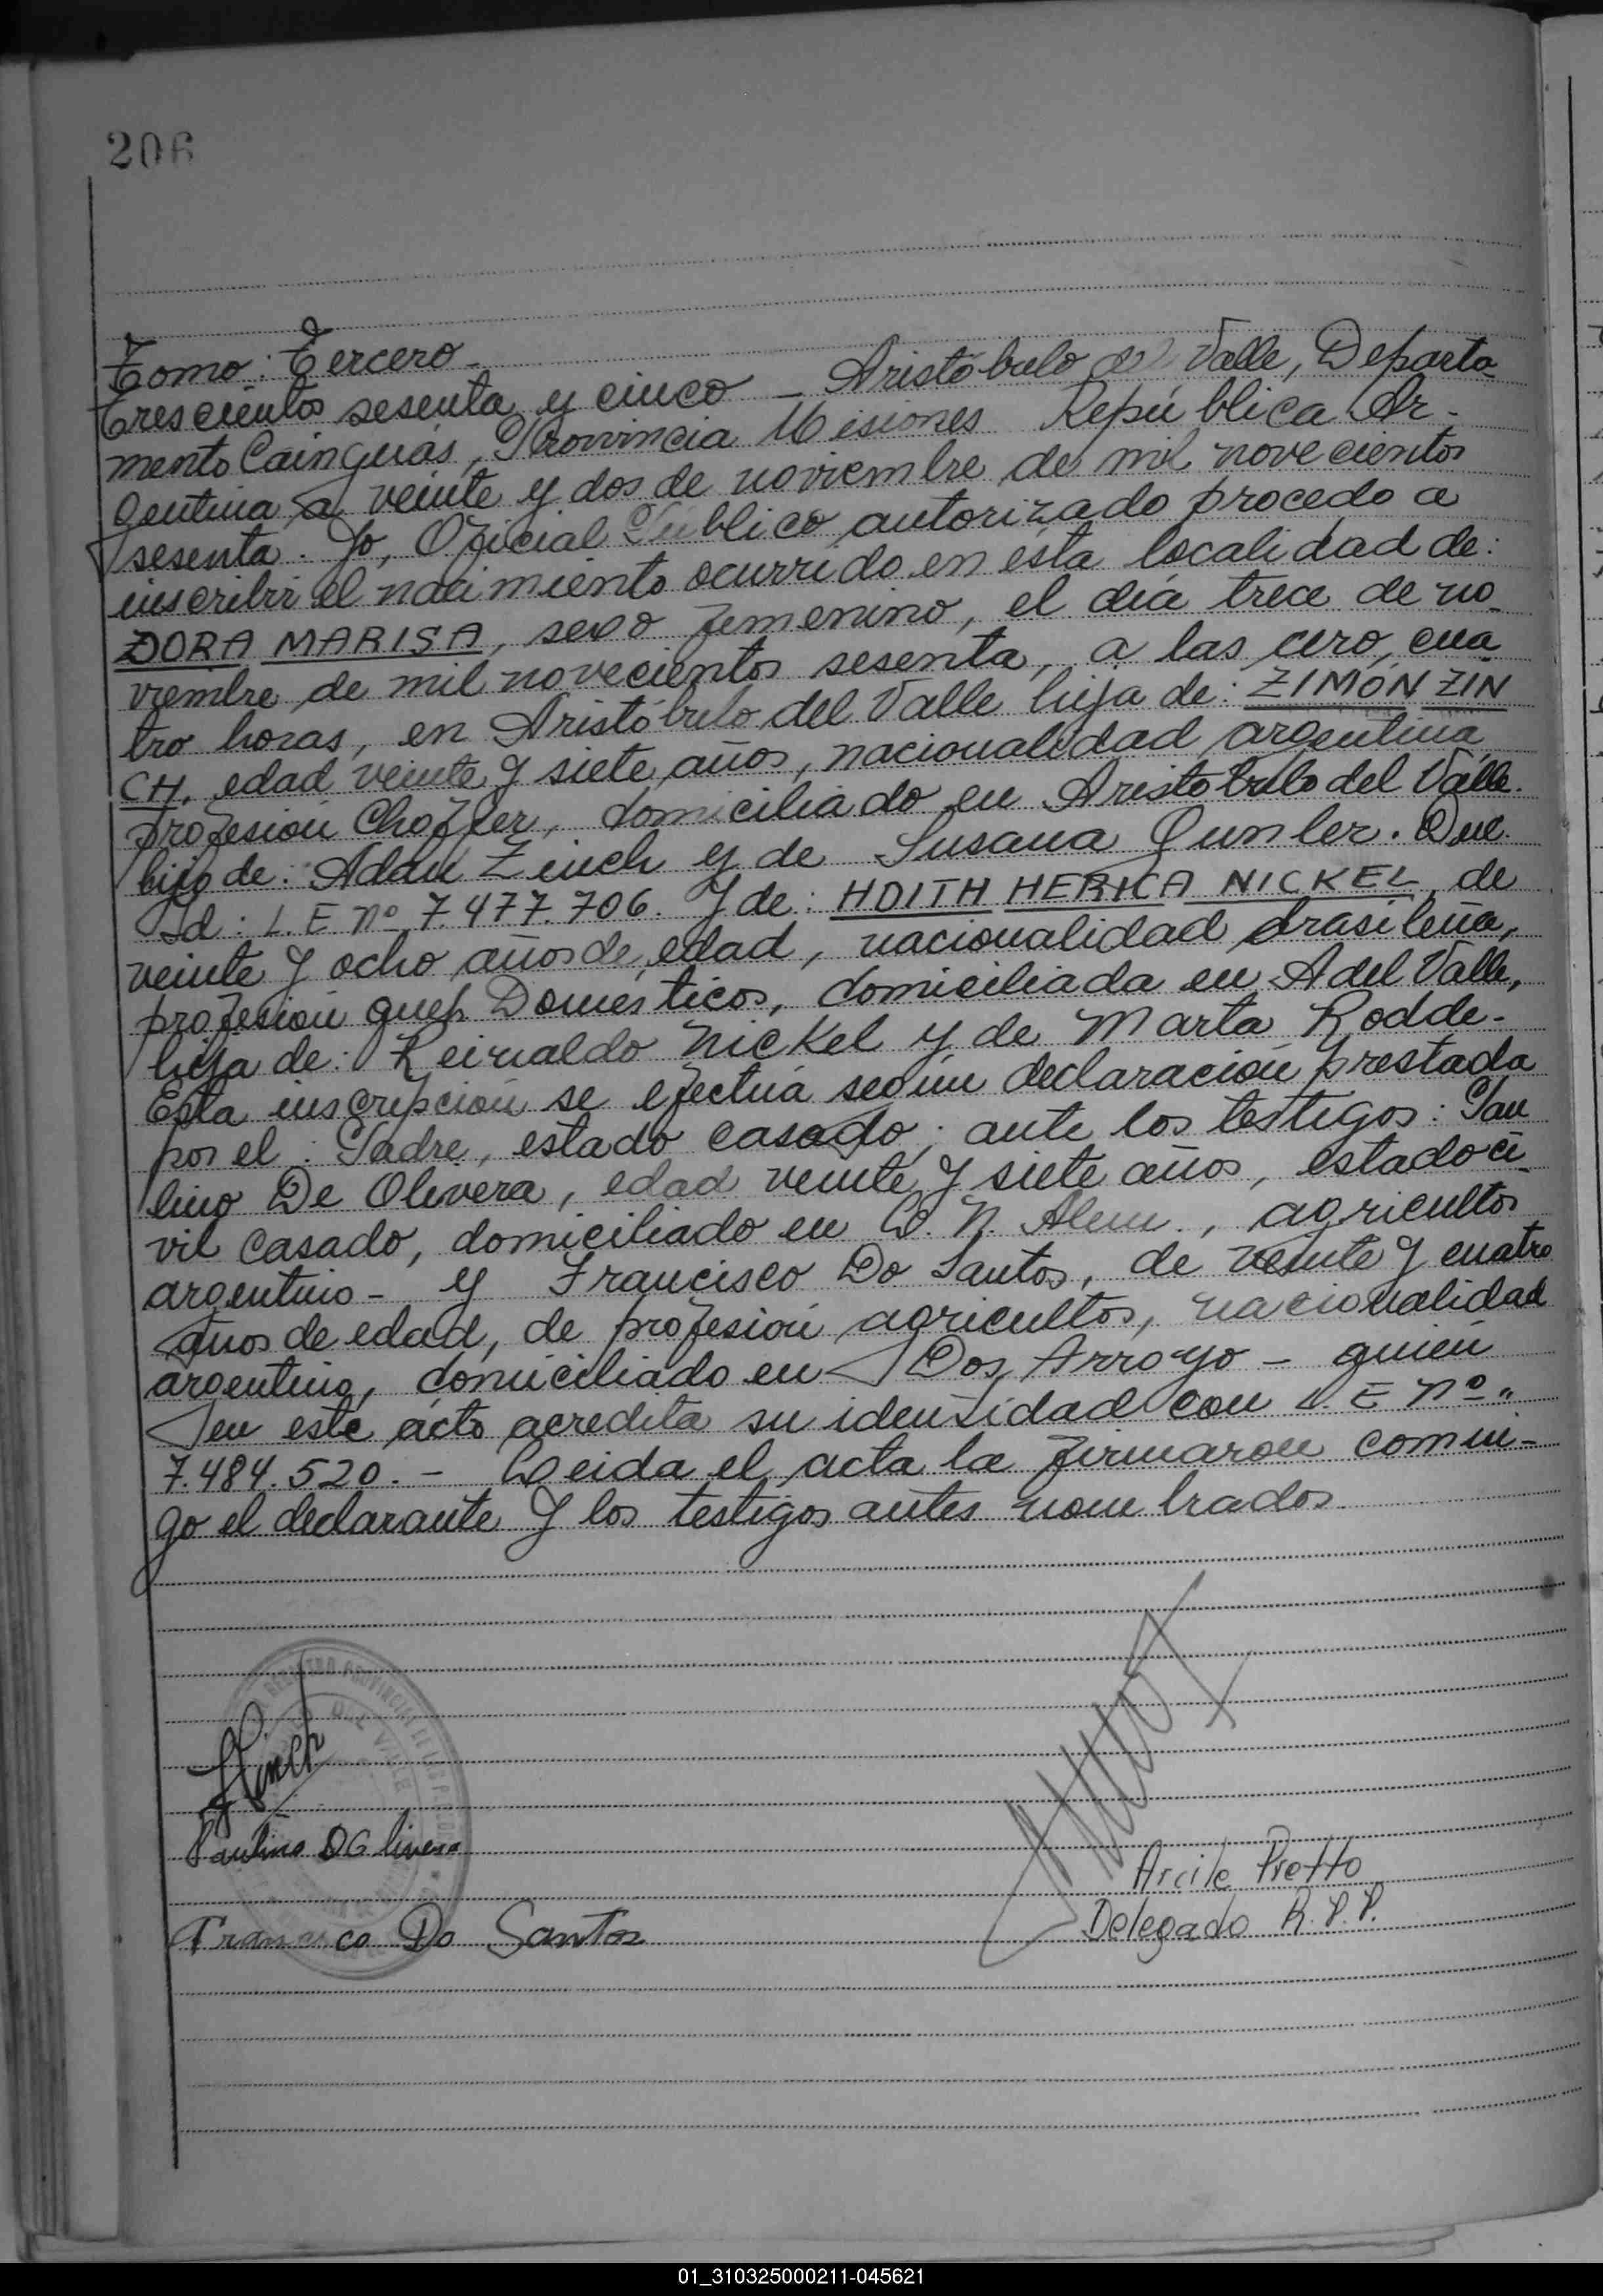 206
Tomo: Tercero-
Trescientos sesenta y cinco - Aristóbulo del Valle, Departa-
mento Cainguás, Provincia Misiones República Ar-
gentina a veinte y dos de noviembre de mil novecientos
sesenta. Yo, Oficial Público autorizado procedo a
inscribir el nacimiento ocurrido en ésta localidad de:
DORA MARISA, sexo femenino, el día trece de no-
viembre de mil novecientos sesenta, a las cero, cua-
tro horas, en Aristóbulo del Valle hija de: ZIMÓN ZIN
CH, edad veinte y siete años, nacionalidad argentina,
profesión Choffer, domiciliado en Aristobulo del Valle.
hijo de: Adan Zinch y de Susana Qunler. Due.
Id: L. E Nº 7.477.706. Y de: HDITH HERICA NICKEL, de
veinte y ocho años de edad, nacionalidad brasileña,
profesión queh. Domésticos, domiciliada en A del Valle,
hija de: Reinaldo Nickel y de Marta Rodde.
Esta inscripción se efectúa según declaración prestada
por el: Padre, estado casado; ante los testigos: Pau
lino De Olivera, edad veinte y siete años, estado ci-
vil casado, domiciliado en L. N. Alem., agricultor
argentino - y Francisco Do Santos, de veinte y cuatro
años de edad, de profesión agricultor, nacionalidad
argentino, domiciliado en Dos Arroyo - quién
en este acto acredita su identidad con L. E Nº"
7.484.520. - Leida el acta la firmaron conmi-
go el declarante y los testigos antes nombrados
Zinch
Paulino DO livera
Francisco Do Santos
Arcile Pretto
Delegado R.P.P.
01_310325000211-045621